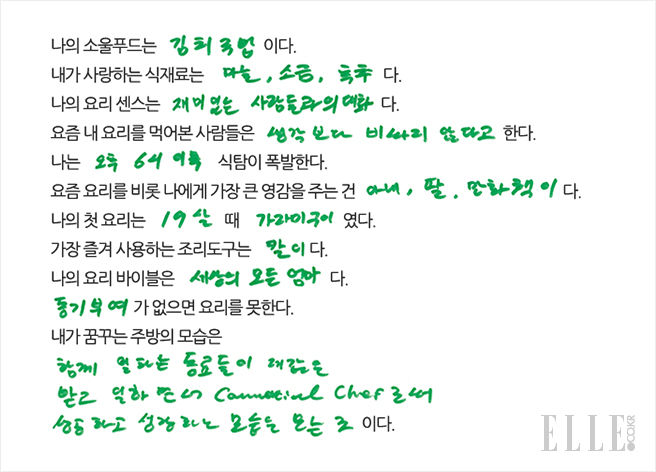 나의 소울푸드는 김치국밥 이다.
내가 사랑하는 식재료는 마늘, 소금, 후추 다.
나의 요리 센스는 재미있는 사람들과의 대화 다.
요즘 내 요리를 먹어본 사람들은 생각보다 비싸지 않다고 한다.
나는 오후 6시 이후 식탐이 폭발한다.
요즘 요리를 비롯 나에게 가장 큰 영감을 주는 건 아내, 딸, 만화책이 다.
나의 첫 요리는 19살 때 가자미구이 였다.
가장 즐겨 사용하는 조리도구는 칼이다.
나의 요리 바이블은 세상의 모든 엄마 다.
동기부여 가 없으면 요리를 못한다.
내가 꿈꾸는 주방의 모습은
함께 일하는 동료들이 대접을
받고 일하면서 Chef 로써
성공하고 성장하는 모습을 보는 것 이다.
ELLE.CO.KR